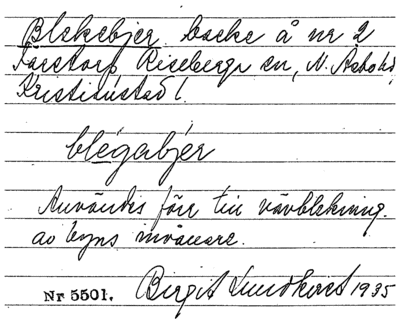 Blekebjer backe å nr 2
Färetorp Riseberga sn, N. Åsbo hd
Kristianstad l.
blégabjer
Användes förr till vävblekning
av byns invånare.
Nr 5501. Birgit Lundkvist 1935